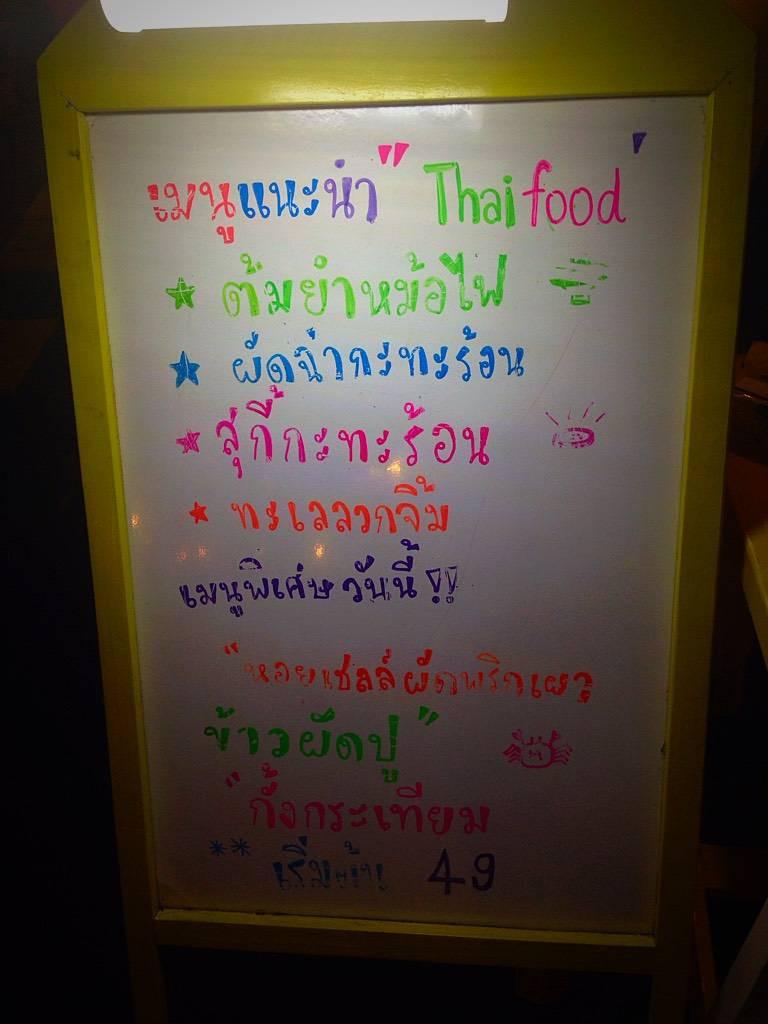 เมนูแนะนำ "Thai food"
ต้มยำหม้อไฟ
ผัดฉ่ากะทะร้อน
สุ่กี้กะทะร้อน
ทะเลลวกจิ้ม
เมนูพิเศษวันนี้ !!
"หอยเชลล์ผัดพริกเผา
ข้าวผัดปู"
"กั้งกระเทียม
** เริ่มต้น 49